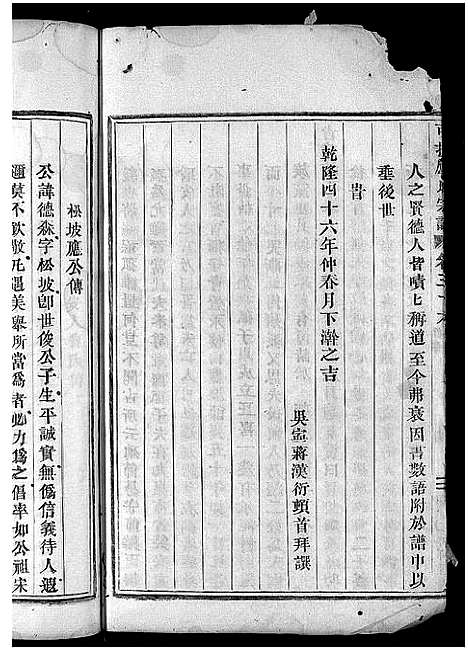 人之賢德人皆嘖七稱道至今弗衰因書數語附於譜中以
垂後世
旹
乾隆四十六年仲春月下澣之吉
吳寧蔣漢衍頓首拜譔
松坡應公傳
公諱德森字松坡卽世俊公子生平誠實無僞信義待人遐
邇莫不欽敬凡遇美舉所當爲者必力爲之倡率如公祖宋